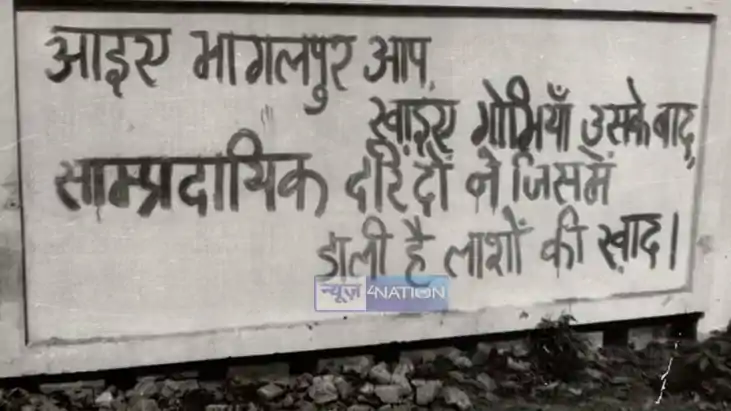 आइए भागलपुर आप
खाइए गोभियाँ उसके बाद,
साम्प्रदायिक दरिंदों ने जिसमें
डाली है लाशों की ख़ाद।
न्यूज़ 4NATION